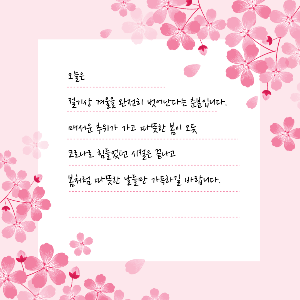 오늘은
절기상 겨울을 완전히 벗어난다는 춘분입니다.
매서운 추위가 가고 따뜻한 봄이 오듯
코로나로 힘들었던 시절은 끝나고
봄처럼 따뜻한 날들만 가득하길 바랍니다.